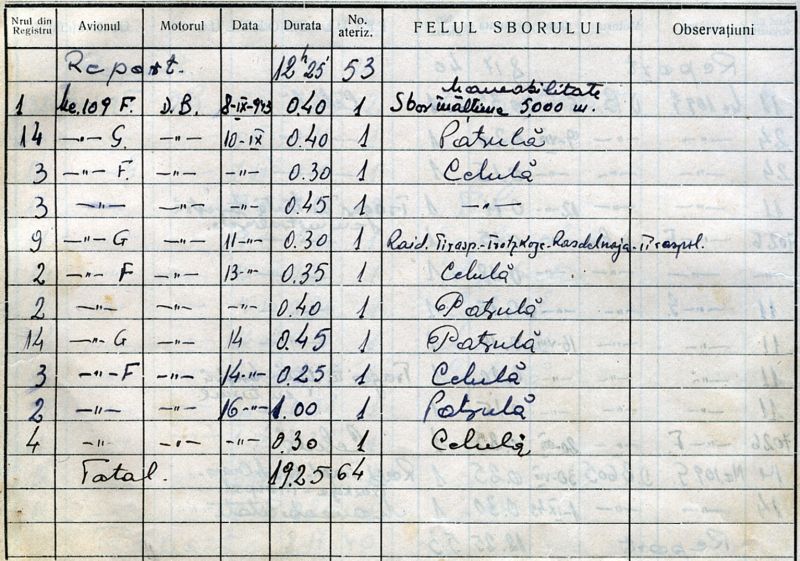 Nrul din Registru Avionul Motorul Data Durata No. ateriz. FELUL SBORULUI Observațiuni
Report. 12h25' 53
1 Me.109 F. D.B. 8-IX-943 0.40 1 Manevrabilitate Sbor înălțime 5.000 m.
14 —"— G. —"— 10-IX 0.40 1 Patrulă
3 —"— F. —"— —"— 0.30 1 Celulă
3 —"— —"— —"— 0.45 1 —"—
9 —"— G —"— 11-"- 0.30 1 Raid. Tirasp.- -Rasdelnaja-Tiraspol.
2 —"— F —"— 13-"- 0.35 1 Celulă
2 —"— —"— —"— 0.40 1 Patrulă
14 —"— G —"— 14 0.45 1 Patrulă
3 —"— F —"— 14-"- 0.25 1 Celulă
2 —"— —"— 16-"- 1.00 1 Patrulă
4 —"— —"— —"— 0.30 1 Celulă
Total. 19.25 64